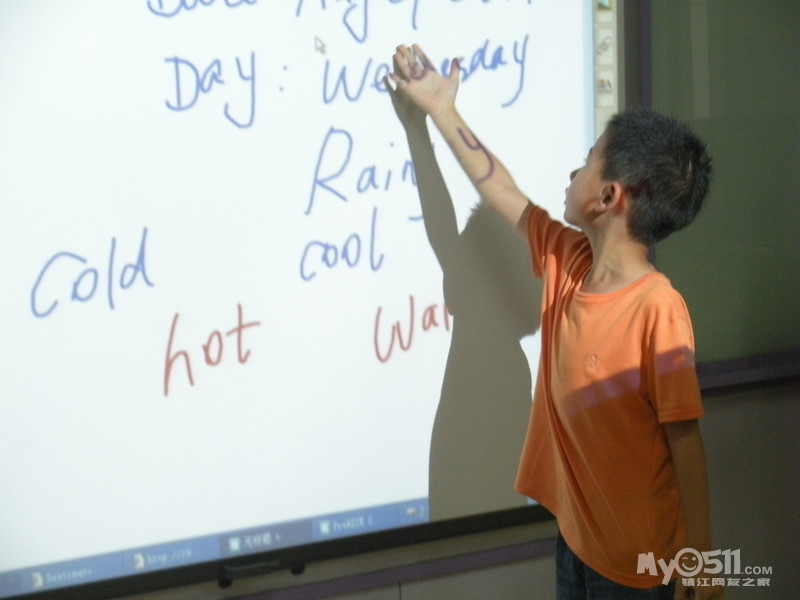 Day: Wednesday
Rainy
cold cool
hot
http://
MYO511.COM
镇江网友之家